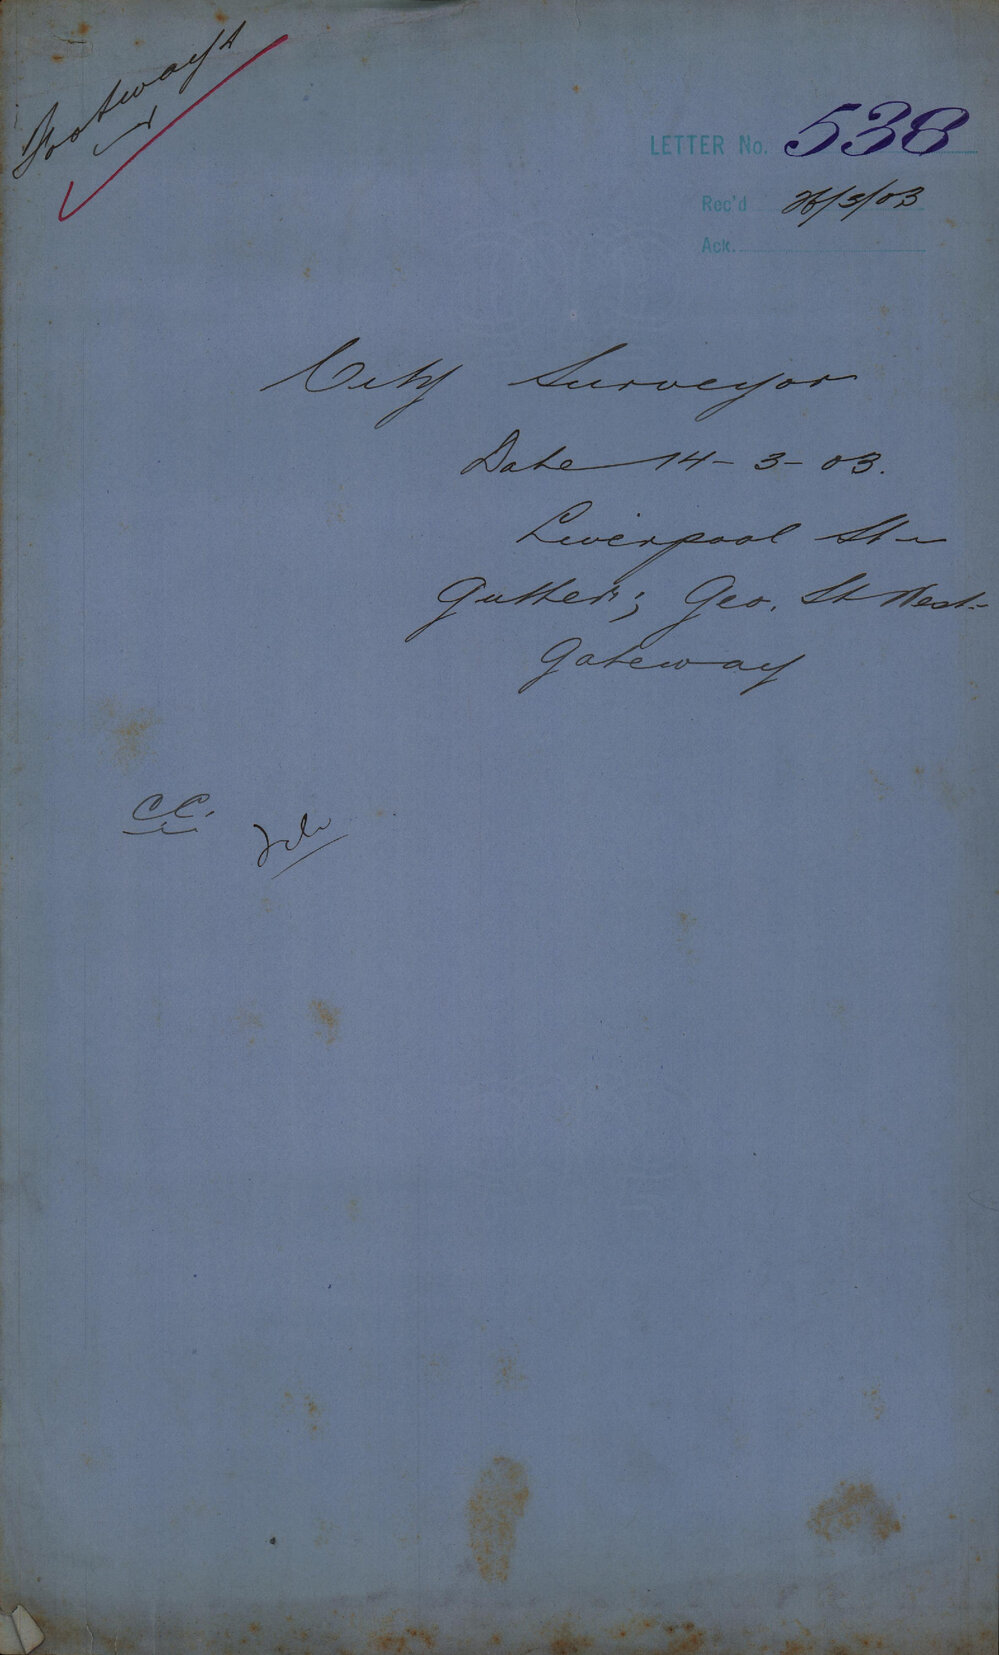 Footways
LETTER No. 538
Rec'd 26/3/03
Ack.
City Surveyor
Date 14-3-03.
Liverpool St
Gutter; Geo. St West
Gateway
CC.